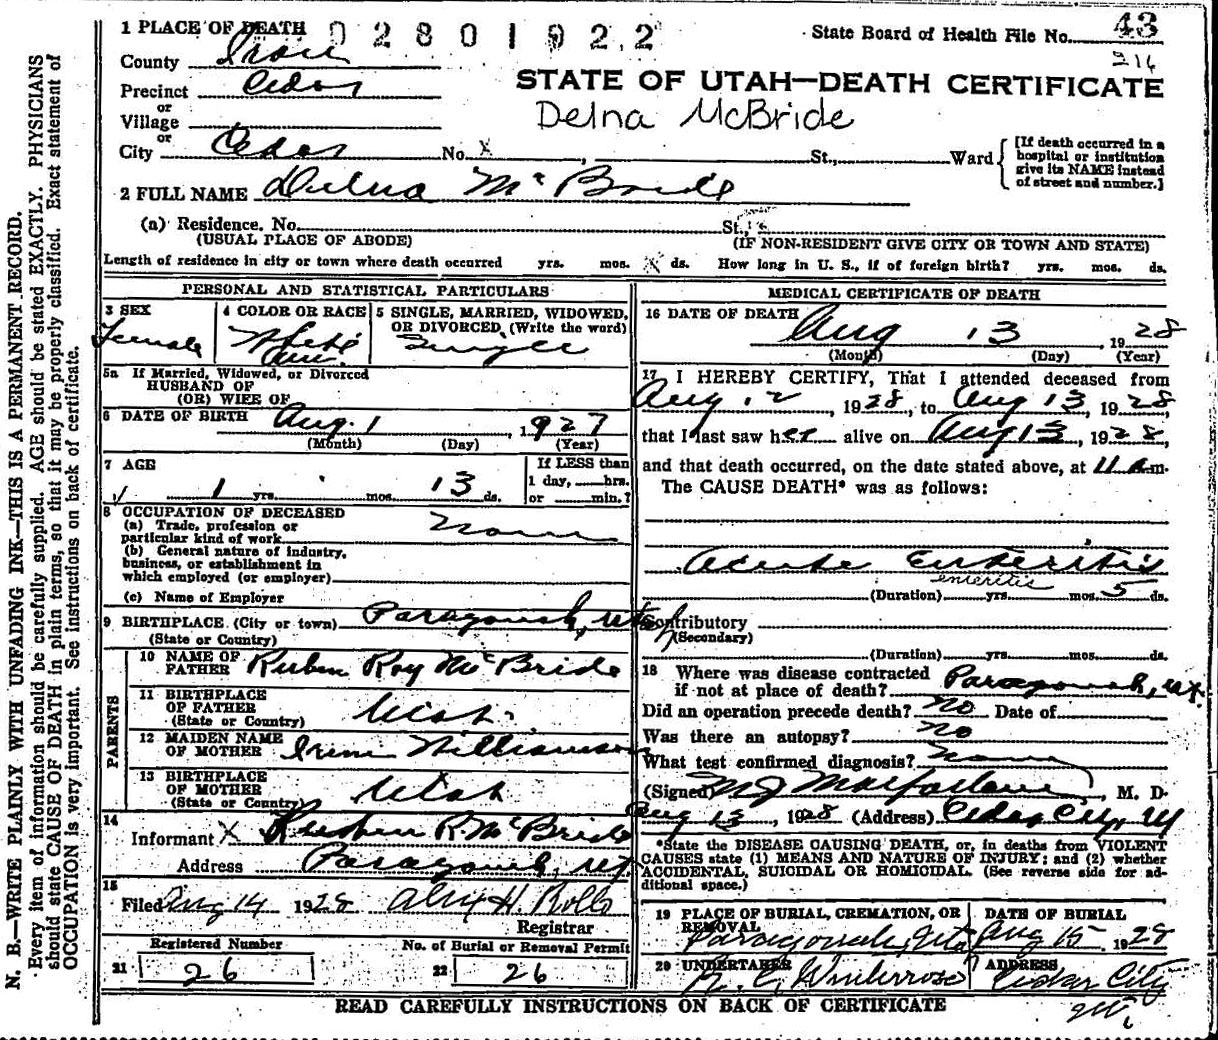 1 PLACE OF DEATH 02801922
State Board of Health File No. 43
216
County Iron
Precinct Cedar
or
Village
or
City Cedar No. x St., Ward
[If death occurred in a hospital or institution give its NAME instead of street and number.]
STATE OF UTAH—DEATH CERTIFICATE
Delna McBride
2 FULL NAME Delna Mc Bride
(a) Residence. No. St.,
(USUAL PLACE OF ABODE) (IF NON-RESIDENT GIVE CITY OR TOWN AND STATE)
Length of residence in city or town where death occurred yrs. mos. x ds. How long in U. S., if of foreign birth? yrs. mos. ds.
PERSONAL AND STATISTICAL PARTICULARS
3 SEX
Female
4 COLOR OR RACE
White
Am.
5 SINGLE, MARRIED, WIDOWED,
OR DIVORCED, (Write the word)
Single
5a If Married, Widowed, or Divorced
HUSBAND OF
(OR) WIFE OF
6 DATE OF BIRTH Aug. 1, 1927
(Month) (Day) (Year)
7 AGE
1 yrs. mos. 13 ds.
If LESS than
1 day, hrs.
or min.?
8 OCCUPATION OF DECEASED
(a) Trade, profession or
particular kind of work None
(b) General nature of industry,
business, or establishment in
which employed (or employer)
(c) Name of Employer
9 BIRTHPLACE (City or town) Paragonah, Utah
(State or Country)
PARENTS
10 NAME OF
FATHER Ruben Roy McBride
11 BIRTHPLACE
OF FATHER
(State or Country) Utah
12 MAIDEN NAME
OF MOTHER Irene Williamson
13 BIRTHPLACE
OF MOTHER
(State or Country) Utah
14
Informant x Reuben R. McBride
Address Paragonah, Ut
15
Filed Aug 14 1928 H. Rollo
Registrar
Registered Number
21 26
No. of Burial or Removal Permit
22 26
MEDICAL CERTIFICATE OF DEATH
16 DATE OF DEATH
Aug 13, 1928
(Month) (Day) (Year)
17 I HEREBY CERTIFY, That I attended deceased from
Aug 12, 1928, to Aug 13, 1928,
that I last saw her alive on Aug 13, 1928,
and that death occurred, on the date stated above, at 11 a m.
The CAUSE DEATH* was as follows:
Acute Enteritis
enteritis
(Duration) yrs. mos. 5 ds.
Contributory
(Secondary)
(Duration) yrs. mos. ds.
18 Where was disease contracted
if not at place of death? Paragonah, Ut.
Did an operation precede death? No Date of
Was there an autopsy? no
What test confirmed diagnosis? none
(Signed) M J Macfarlane, M. D.
Aug 13, 1928 (Address) Cedar City, Ut
*State the DISEASE CAUSING DEATH, or, in deaths from VIOLENT
CAUSES state (1) MEANS AND NATURE OF INJURY; and (2) whether
ACCIDENTAL, SUICIDAL OR HOMICIDAL. (See reverse side for ad-
ditional space.)
19 PLACE OF BURIAL, CREMATION, OR
REMOVAL
Paragonah, Utah
DATE OF BURIAL
Aug 15, 1928
20 UNDERTAKER
Winterrose
ADDRESS
Cedar City
Ut.
READ CAREFULLY INSTRUCTIONS ON BACK OF CERTIFICATE
N. B.—WRITE PLAINLY WITH UNFADING INK—THIS IS A PERMANENT RECORD.
Every item of information should be carefully supplied. AGE should be stated EXACTLY. PHYSICIANS
should state CAUSE OF DEATH in plain terms, so that it may be properly classified. Exact statement of
OCCUPATION is very important. See instructions on back of certificate.